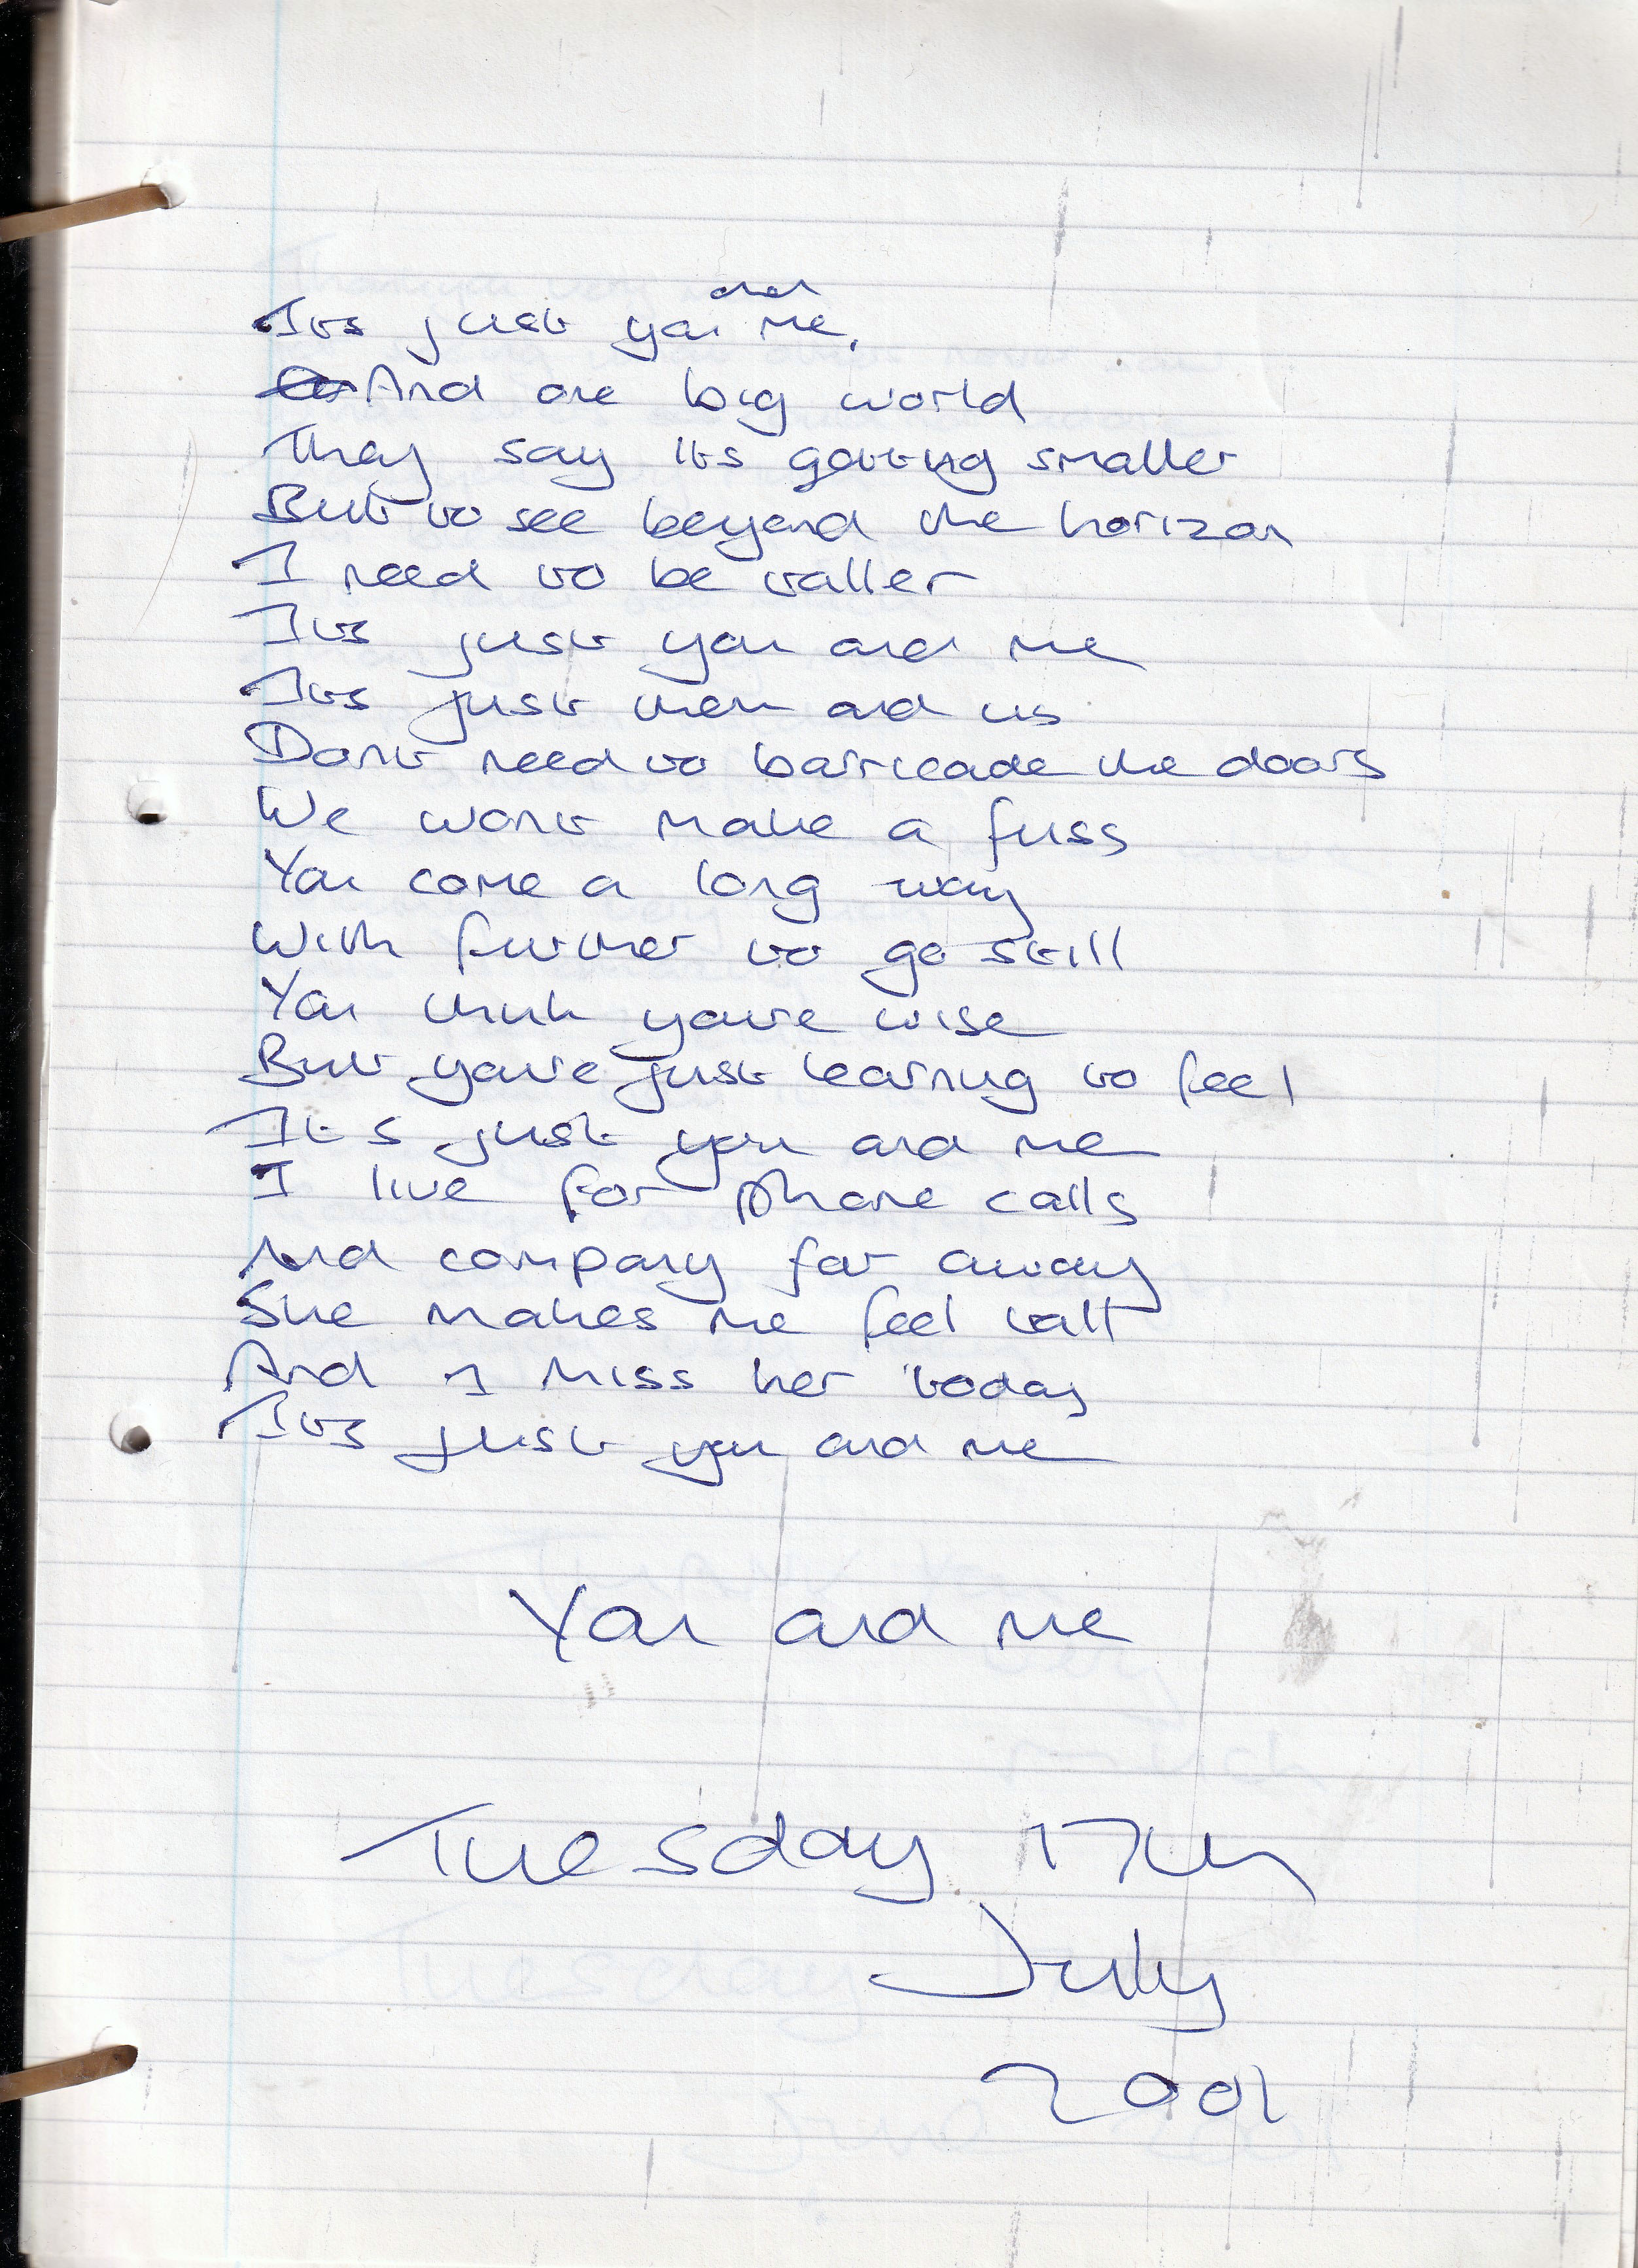 Its just you and me,
And one big world
They say its getting smaller
But to see beyond the horizon
I need to be taller
Its just you and me
Its just them and us
Dont need to barricade the doors
We wont make a fuss
You come a long way
With further to go still
You think youre wise
But youre just learning to feel
Its just you and me
I live for phone calls
And company far away
She makes me feel tall
And I miss her today
Its just you and me
You and me
Tuesday 17th
July
2001